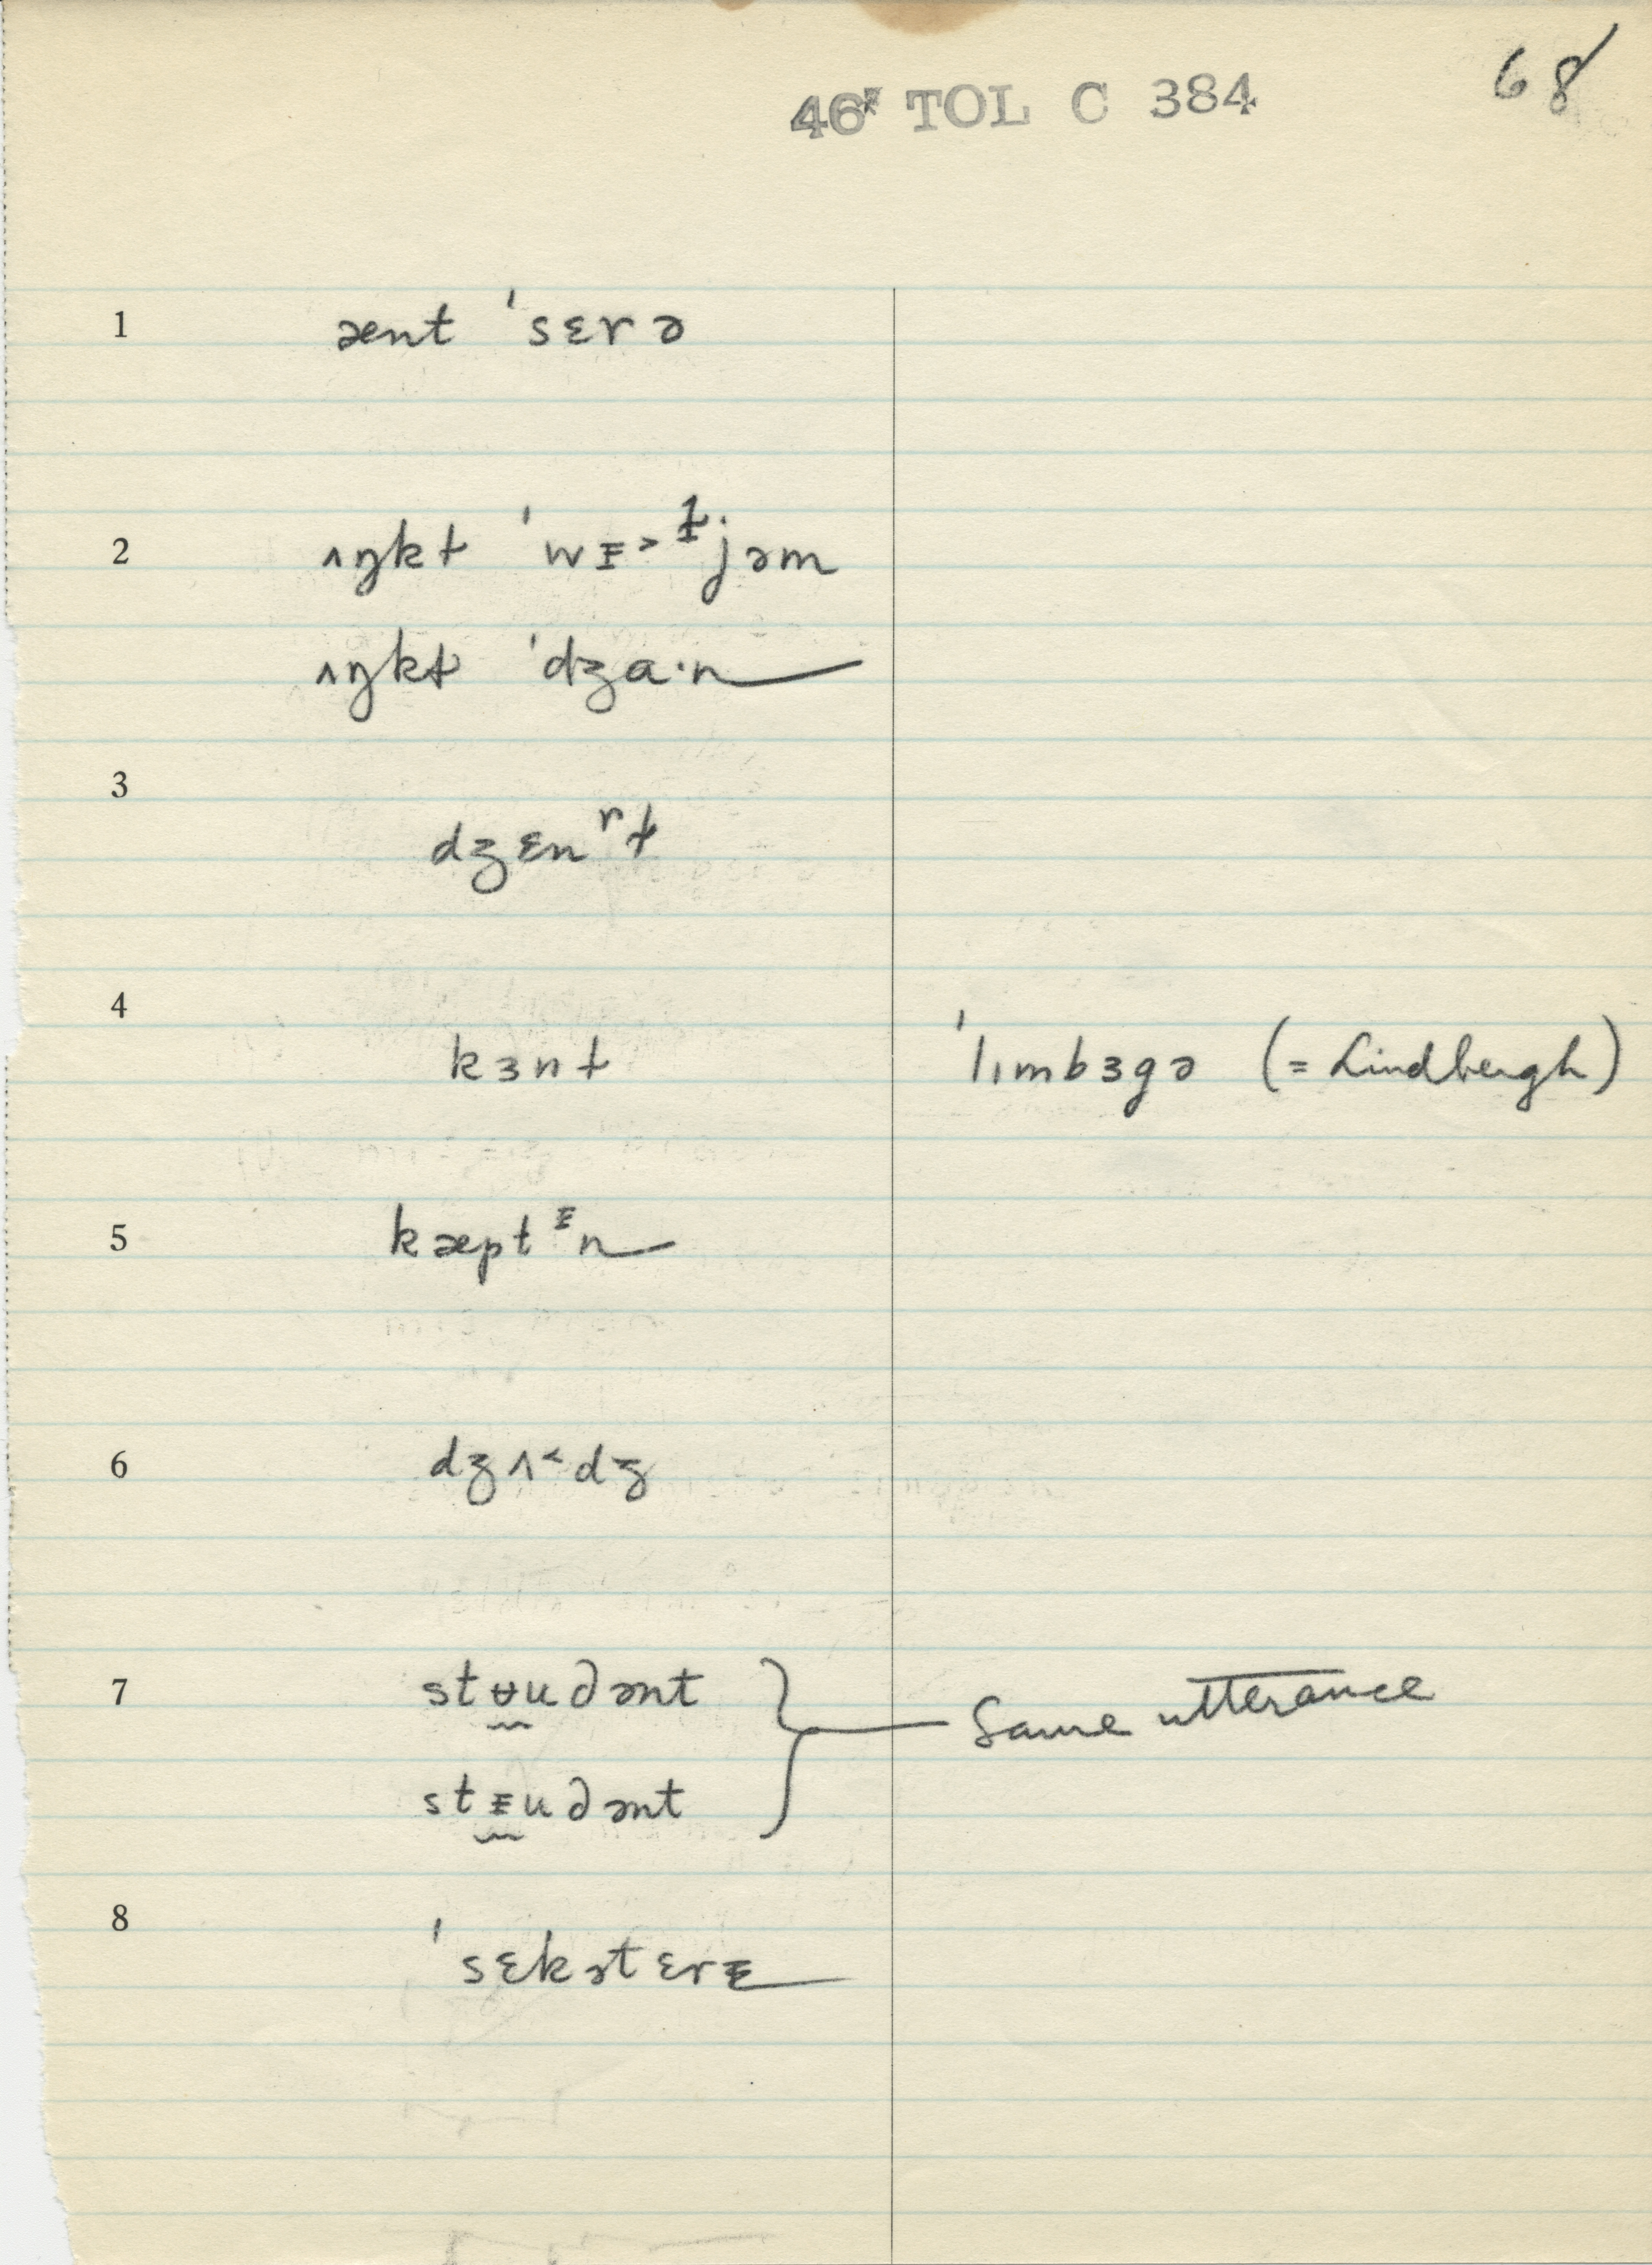 46 TOL C 384
68
1 ænt ˈsɛrə
2 ʌŋkɫ ˈwᵻ˃ɫjəm
ʌŋkɫ ˈdʒɑ·n
3 dʒɛnʳɫ
4 kɜnɫ ˈlɪmbɜgə (= Lindbergh)
5 kæptᵻn
6 dʒʌ˂dʒ
7 stʉudənt
Same utterance
stᵻudənt
8 ˈsɛkətɛrᵻ